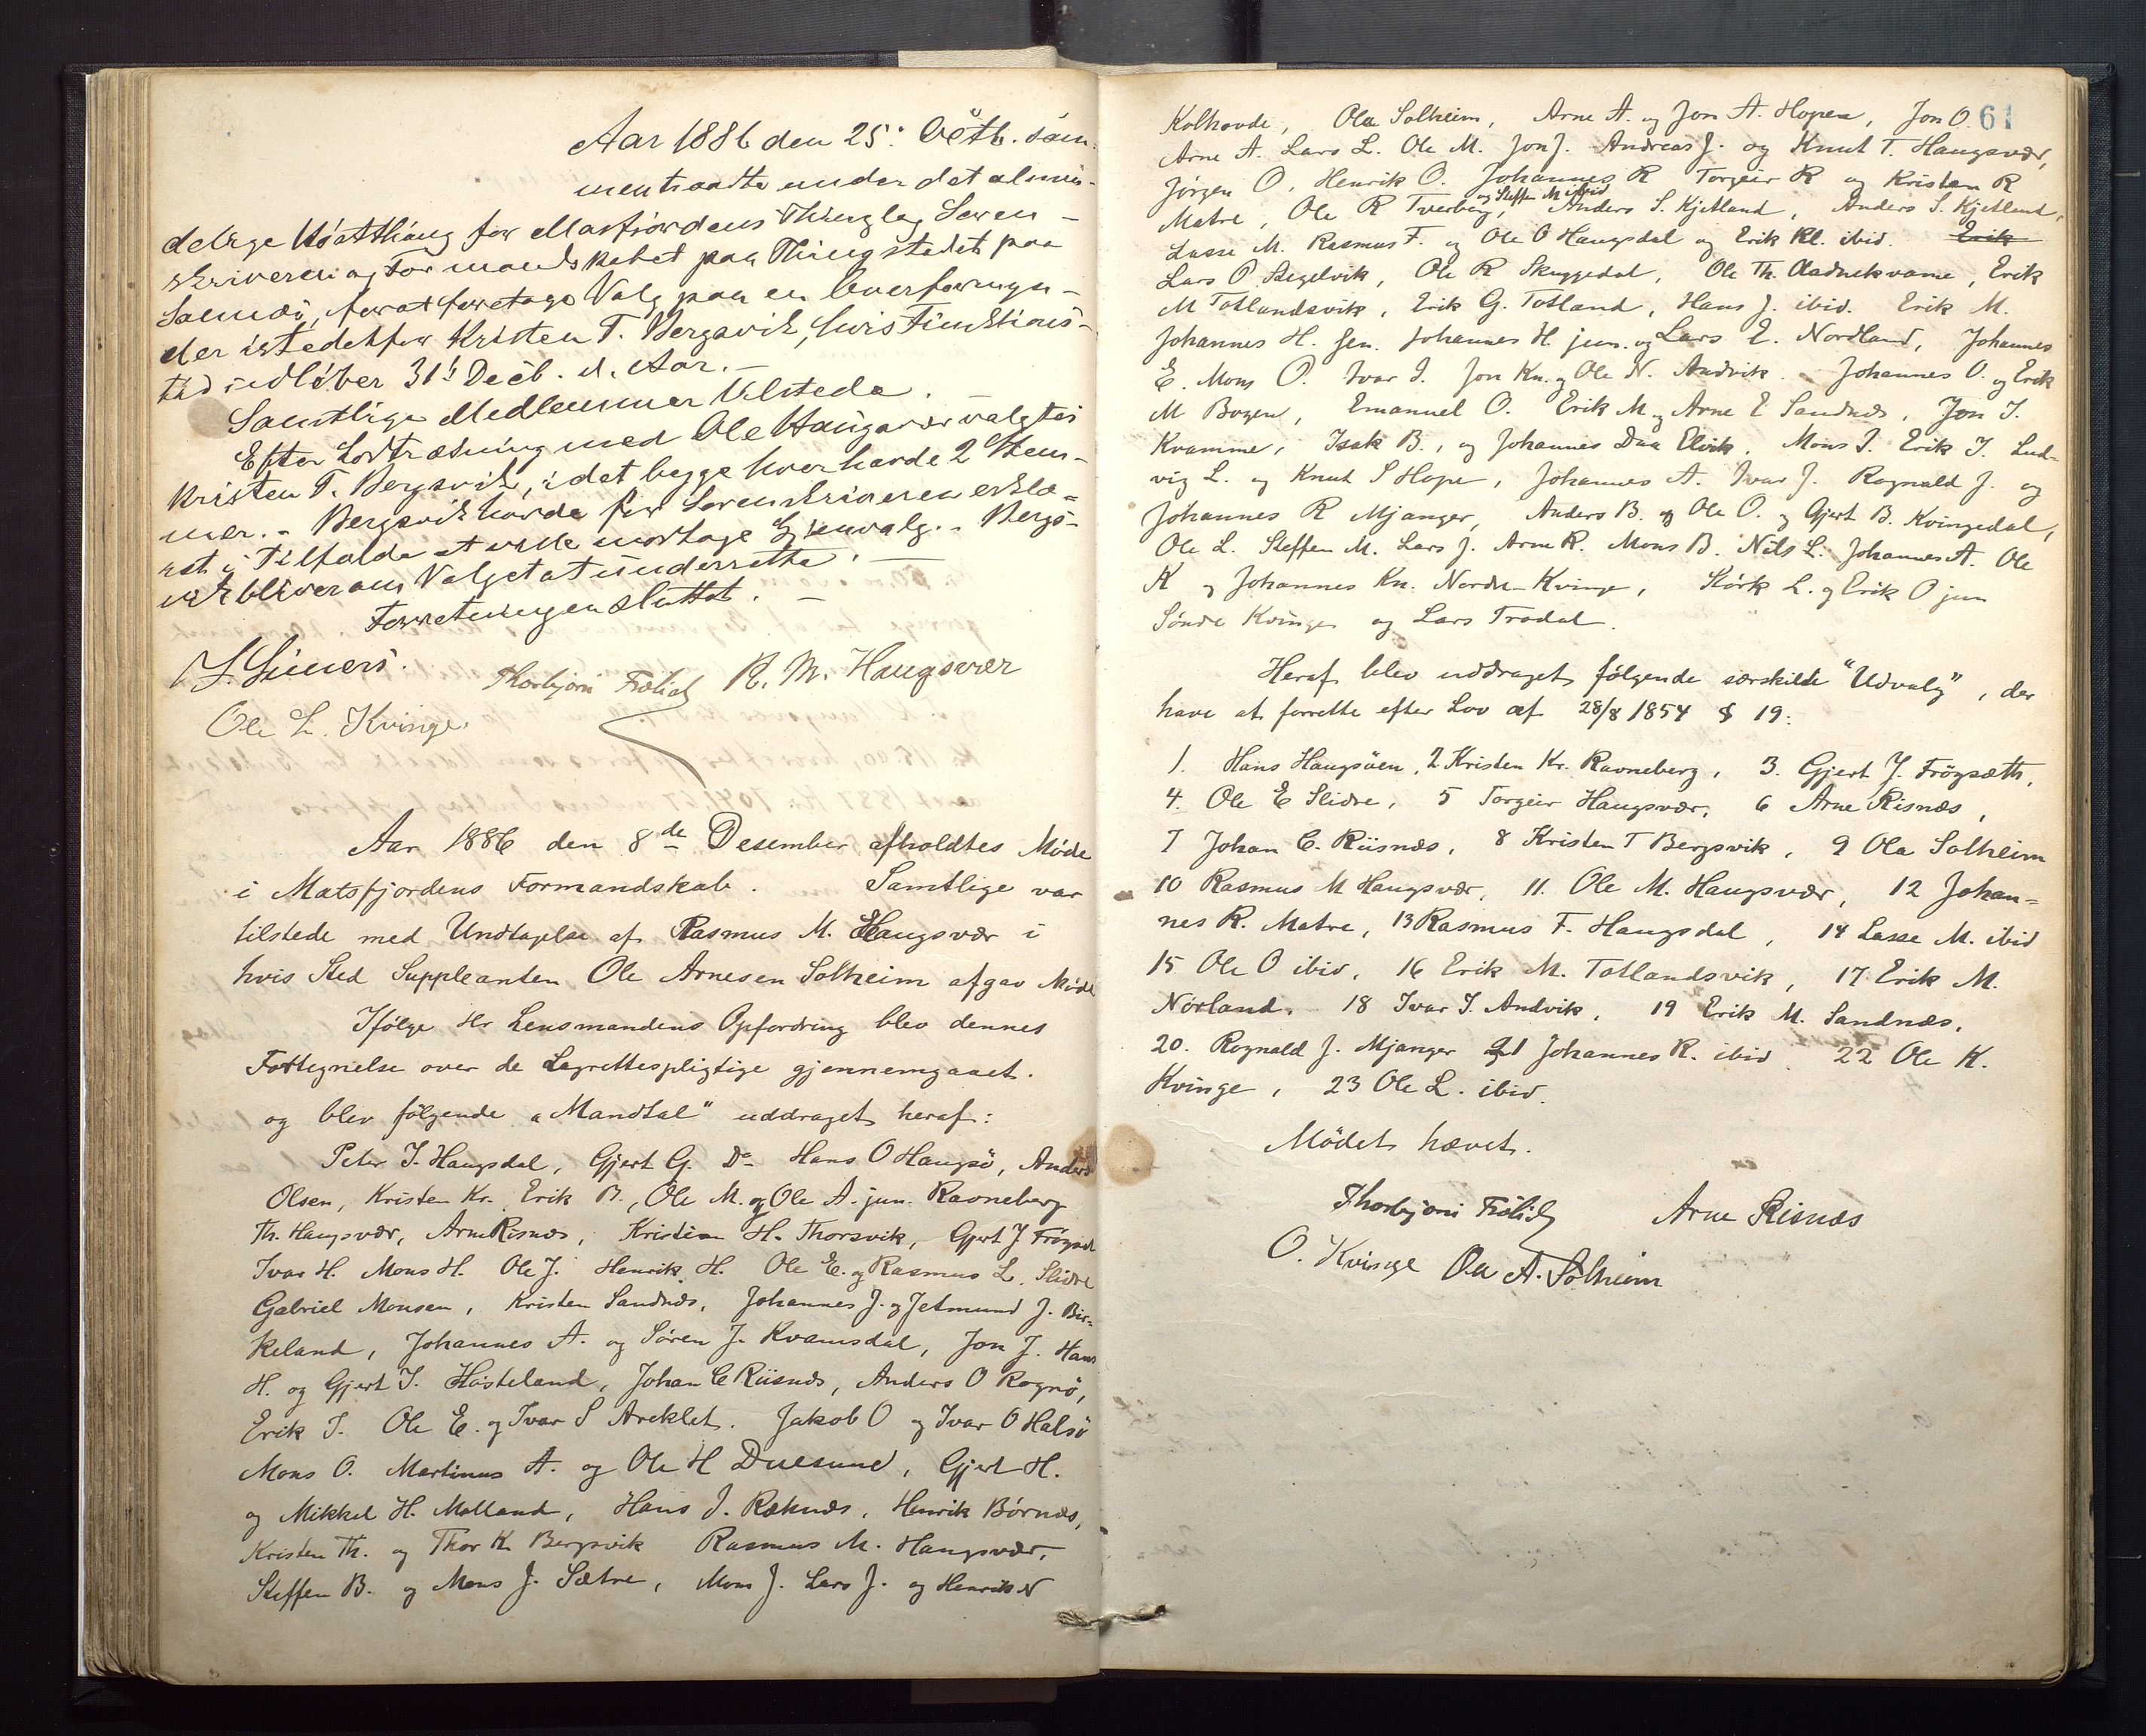 Aar 1886 den 25. Octb. sam-
mentraadte under det almin-
delige Høstthing for Masfjordens Thinglag Soren-
skriveren og Formandskabet paa Thingstedet paa
Solnæs, for at foretage Valg paa en Overformyn-
der istedetfor Kristen T. Bergsvik, hvis Funktions-
tid udløber 31' Decb. d. Aar. -
Samtlige Medlemmer tilstede.
Efter Lodtrækning med Ole Haugsvær valgtes
Kristen T. Bergsvik, idet begge hver havde 2 Stem-
mer. - Bergsvik havde for Sorenskriveren erklæ-
ret i Tilfælde at ville modtage Gjenvalg. - Bergs-
vik bliver om Valget at underrette. -
Forretningen sluttet. -
Thorbjørn Frølid R. M. Haugsvær
Ole L. Kvinge.
Aar 1886 den 8de Desember afholdtes Møde
i Matsfjordens Formandskab. Samtlige var
tilstede med Undtagelse af Rasmus M. Haugsvær i
hvis Sted Suppleanten Ole Arnesen Solheim afgav Møde
Ifølge Hr Lensmandens Opfordring blev dennes
Fortegnelse over de Lagrettespligtige gjennemgaaet.
og blev følgende "Mandtal" uddraget heraf:
Peter J. Haugsdal, Gjert G. Do Hans O Haugsø, Anders
Olsen, Kristen Kr. Erik B., Ole M. og Ole A. jun. Ravneberg
Th. Haugsvær, Arne Risnæs, Kristian H. Thorsvik, Gjert J Frøgset
Ivar H. Mons H. Ole J. Henrik H. Ole E. og Rasmus L. Slidre
Gabriel Monsen, Kristen Sandnæs, Johannes J. og Jetmund J. Bir-
keland, Johannes A. og Søren J. Kvamsdal, Jon J. Hans
H. og Gjert I. Hosteland, Johan C Riisnæs, Anders O Rognø,
Erik I. Ole E. og Ivar S Areklet. Jakob O og Ivar O Halsø
Mons O. Martinus A. og Ole H Duesund, Gjert H.
og Mikkel H. Molland, Hans I. Reknæs, Henrik Børnæs,
Kristen Th. og Thor K Bergsvik Rasmus M. Haugsvær,
Steffen B. og Mons J. Sætre, Mons J. Lars J. og Henrik N
61
Kolhovde, Ola Solheim, Arne A. og Jon A. Hopen, Jon O.
Arne A. Lars L. Ole M. Jon J. Andreas J. og Knut T. Haugsvær,
Jørgen O, Henrik O. Johannes R Torgeir R og Kristen R
og Steffen M ibid
Matre, Ole R Tverberg, Anders S. Kjetland, Anders S. Kjetland,
Lasse M. Rasmus F. og Ole O Haugsdal og Erik Kl. ibid. Erik
Lars O Stegelvik, Ole R Skuggedal, Ole Th. Kvame, Erik
M Totlandsvik, Erik G. Totland, Hans J. ibid. Erik M.
Johannes H. Sen. Johannes H. jun. og Lars E. Nordland, Johannes
E. Mons O. Ivar I. Jon Kn. og Ole N. Andvik. Johannes O. og Erik
M Bogen, Emanuel O. Erik M. og Arne E Sandnæs, Jon I.
Kvamme, Isak B., og Johannes Daa Elvik. Mons I. Erik I. Lud-
vig L. og Knut S Hope, Johannes A. Ivar J. Rognald J. og
Johannes R Mjanger, Anders B. og Ole O. og Gjert B. Kvingedal,
Ole L. Steffen M. Lars J. Arne R. Mons B. Nils L. Johannes A. Ole
K og Johannes Kn. Nordre-Kvinge, Størk L. og Erik O jun
Søndre Kvinge og Lars Trodal.
Heraf blev uddraget følgende særskilte "Udvalg", der
have at forrette efter Lov af 28/8 1854 § 19:
1. Hans Haugsøen, 2 Kristen Kr. Ravneberg, 3. Gjert J. Frøgsæth,
4. Ole E Slidre, 5 Torgeir Haugsvær, 6 Arne Risnæs,
7 Johan C. Riisnæs, 8 Kristen T Bergsvik, 9 Ola Solheim
10 Rasmus M Haugsvær, 11. Ole M. Haugsvær, 12 Johan=
nes R. Matre, 13 Rasmus F. Haugsdal, 14 Lasse M. ibid
15 Ole O ibid, 16 Erik M. Totlandsvik, 17 Erik M.
Nordland, 18 Ivar I. Andvik, 19 Erik M. Sandnæs,
20. Rognald J. Mjanger 21 Johannes R. ibid 22 Ole K.
Kvinge, 23 Ole L. ibid.
Mödet hævet.
Thorbjørn Frølid Arne Risnæs
O. Kvinge Ola A. Solheim